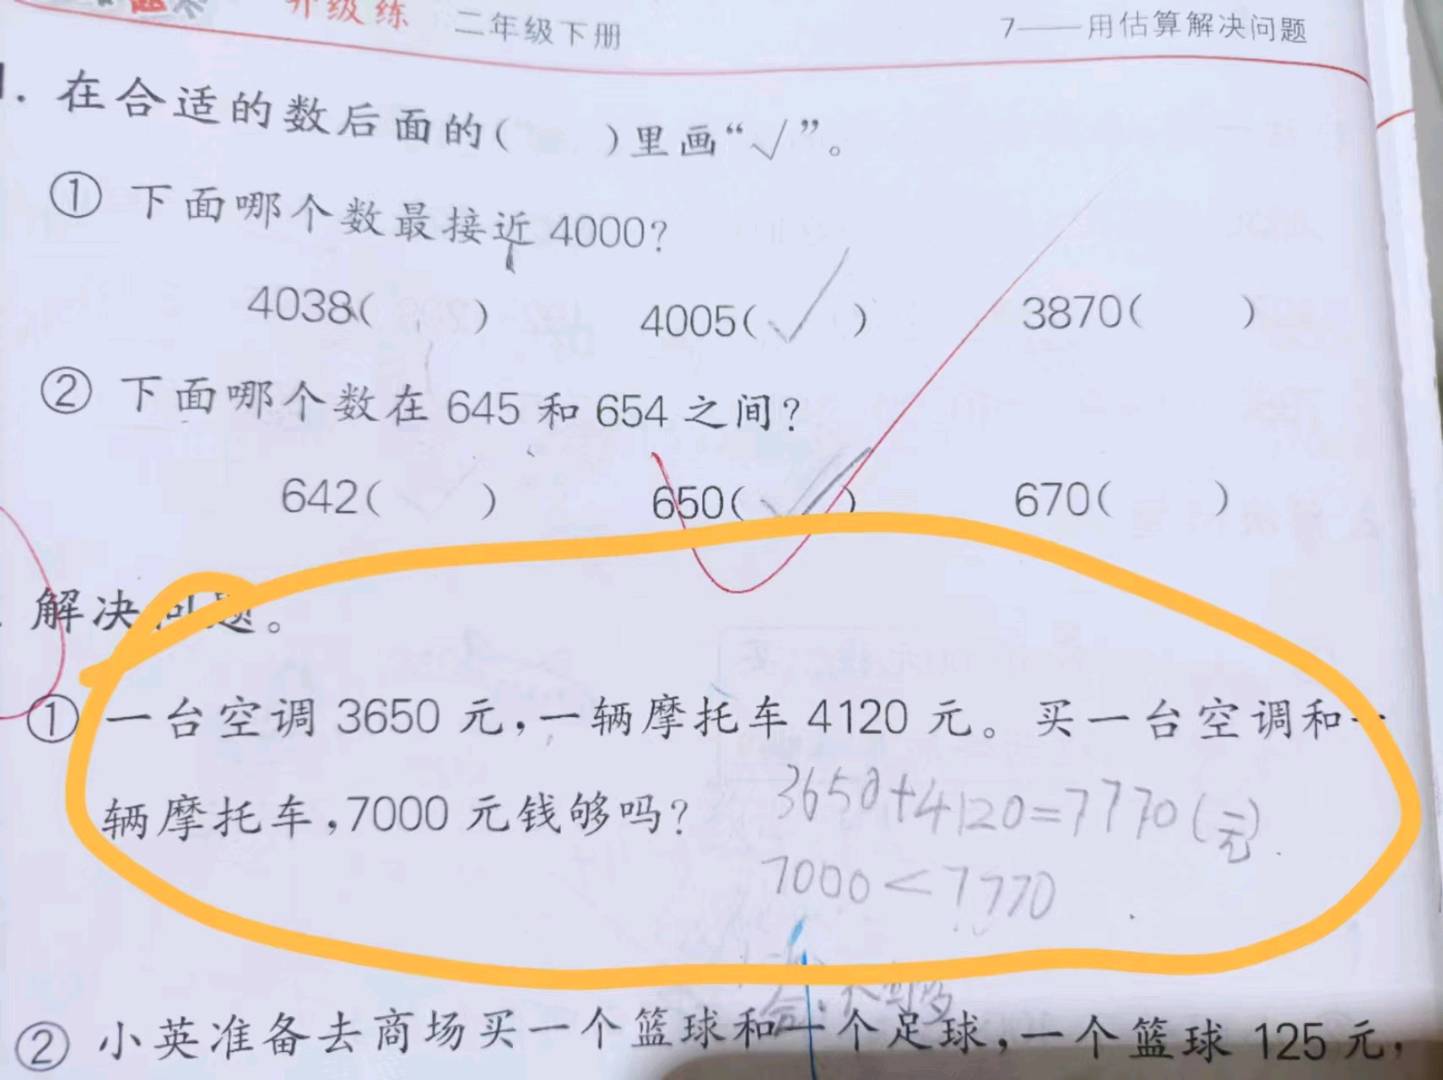 升级练 二年级下册 7——用估算解决问题
1. 在合适的数后面的( )里画“√”。
① 下面哪个数最接近 4000?
4038( ) 4005( √ ) 3870( )
② 下面哪个数在 645 和 654 之间?
642( ) 650( √ ) 670( )
解决问题。
① 一台空调 3650 元,一辆摩托车 4120 元。买一台空调和一
辆摩托车,7000 元钱够吗?
3650+4120=7770(元)
7000<7770
答:不够
② 小英准备去商场买一个篮球和一个足球,一个篮球 125 元,